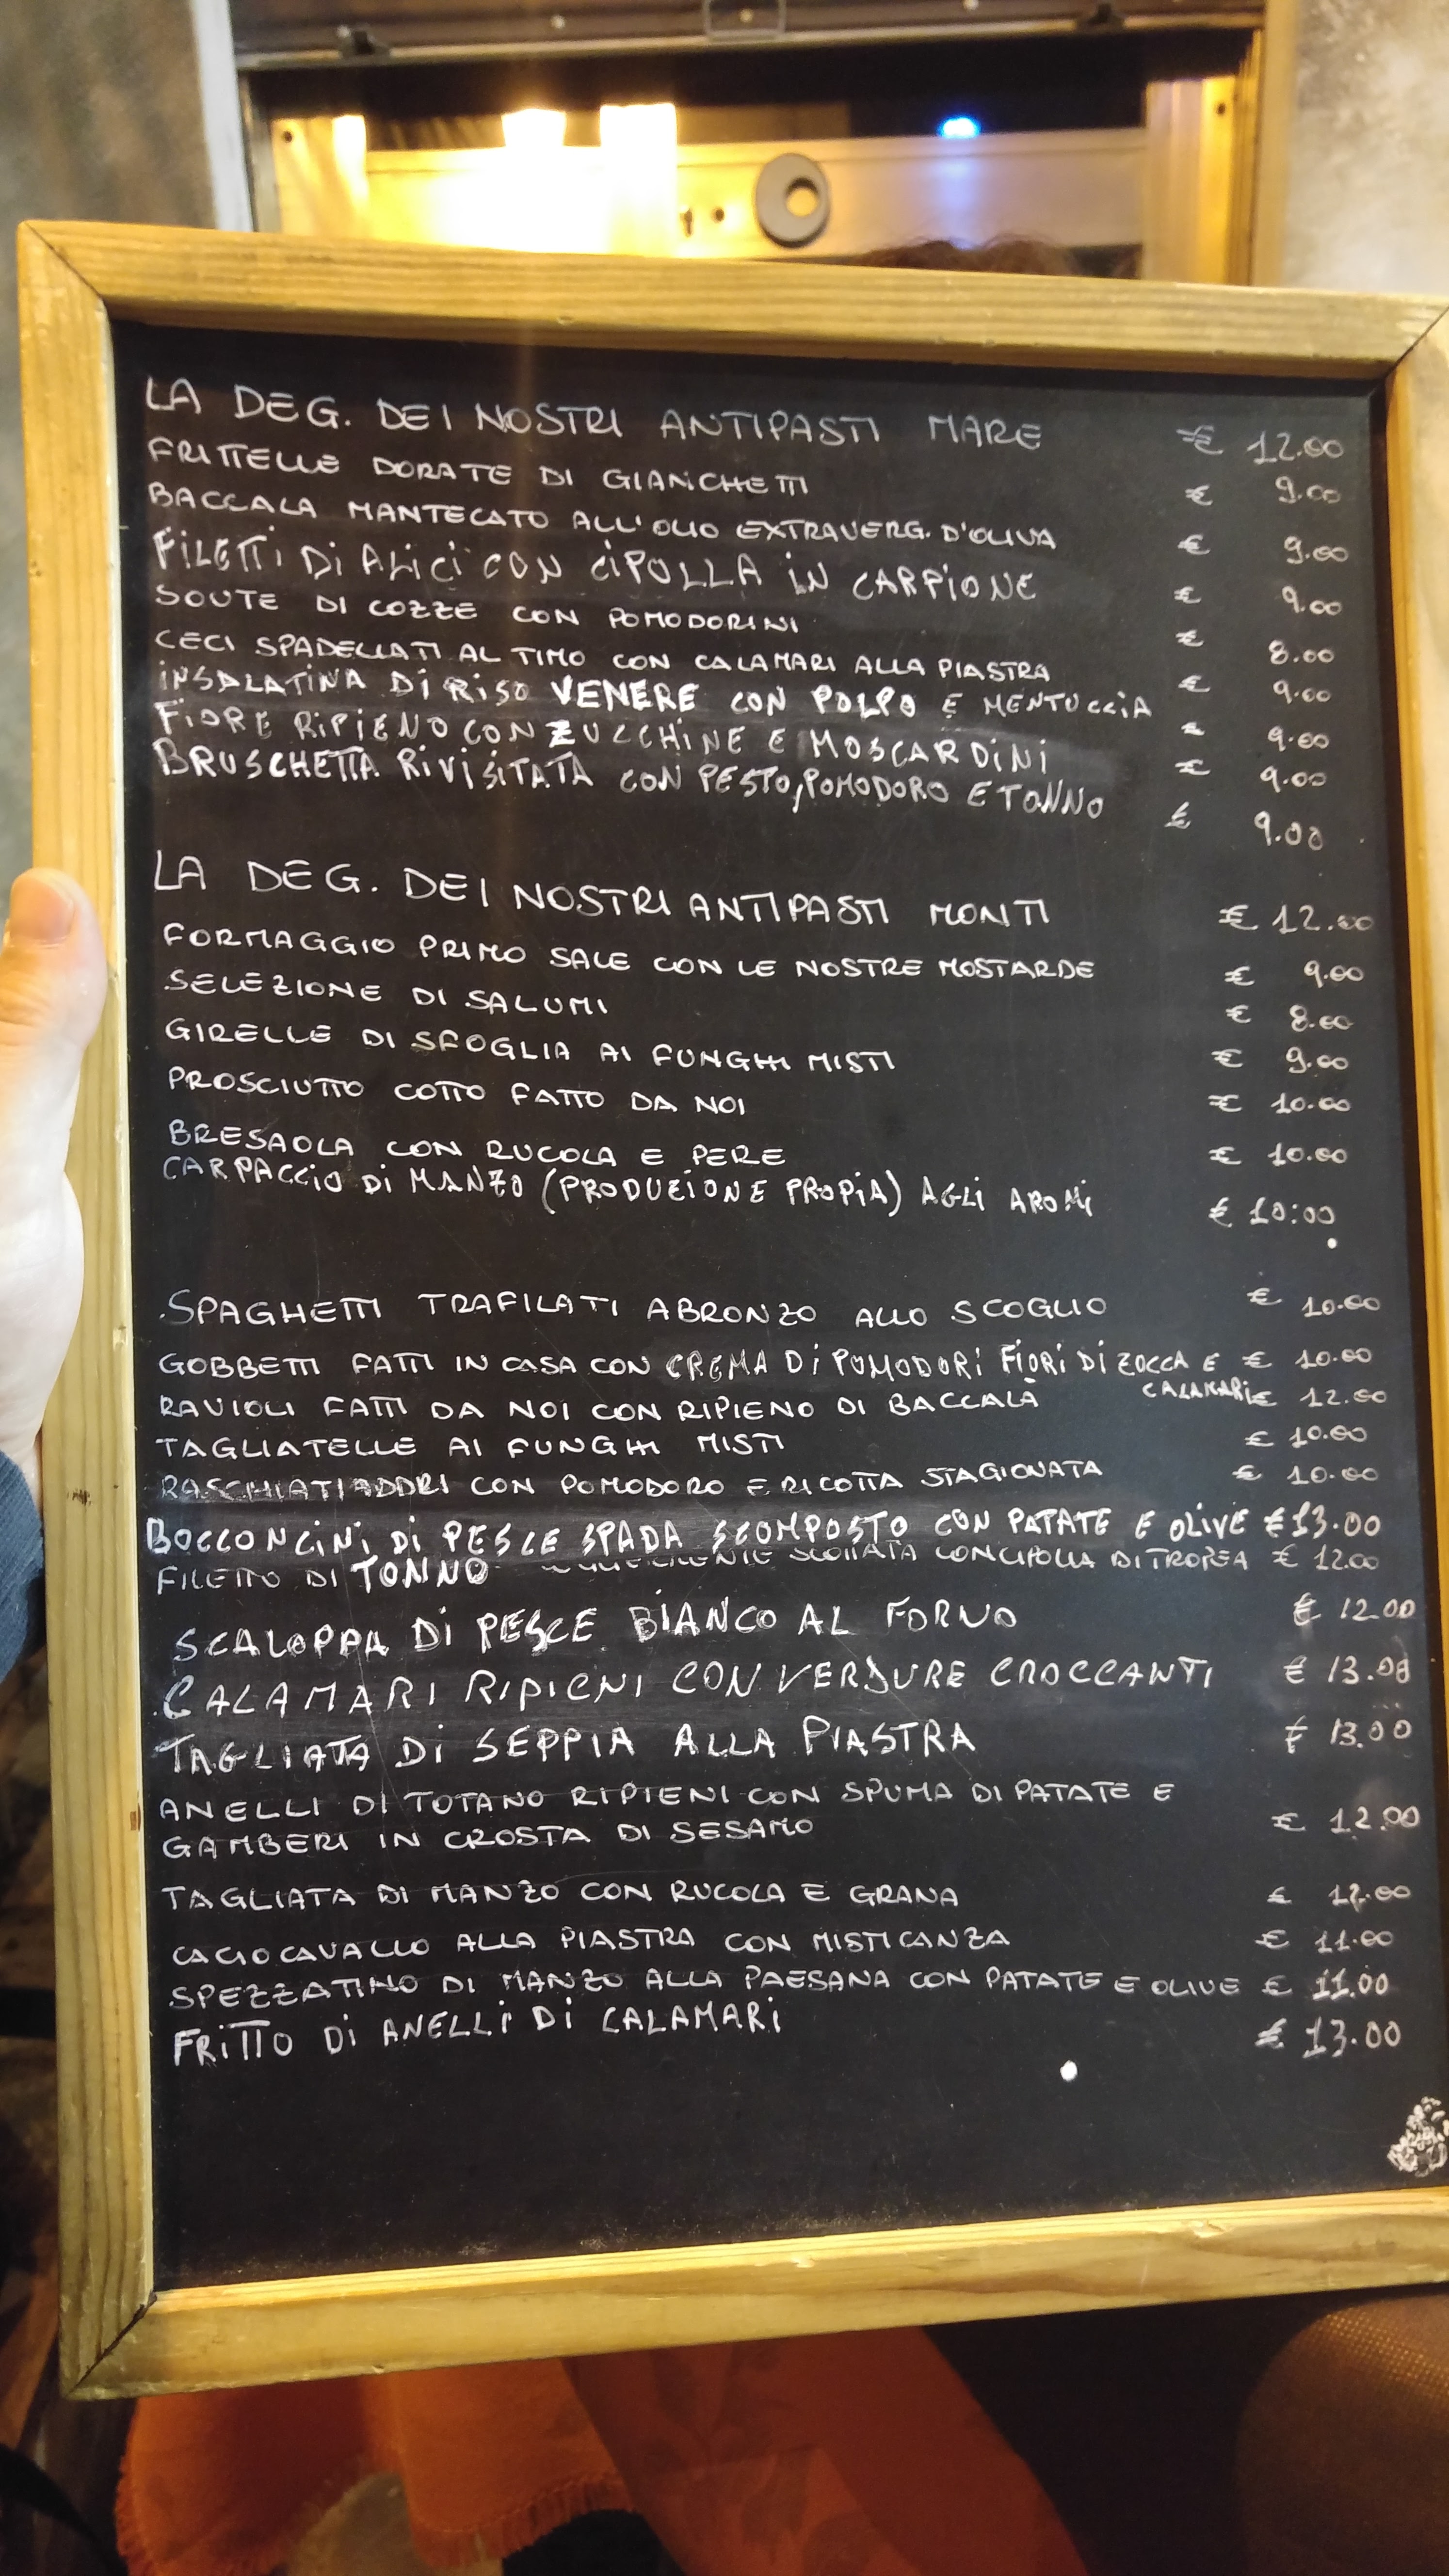 LA DEG. DEI NOSTRI ANTIPASTI MARE € 12.00
FRITTELLE DORATE DI GIANCHETTI € 9.00
BACCALA MANTECATO ALL'OLIO EXTRAVERG. D'OLIVA € 9.00
FILETTI DI ALICI CON CIPOLLA IN CARPIONE € 9.00
SOUTE DI COZZE CON POMODORINI € 8.00
CECI SPADELLATI AL TIMO CON CALAMARI ALLA PIASTRA € 9.00
INSALATINA DI RISO VENERE CON POLPO E MENTUCCIA € 9.00
FIORE RIPIENO CON ZUCCHINE E MOSCARDINI € 9.00
BRUSCHETTA RIVISITATA CON PESTO, POMODORO E TONNO € 9.00
LA DEG. DEI NOSTRI ANTIPASTI MONTI € 12.00
FORMAGGIO PRIMO SALE CON LE NOSTRE MOSTARDE € 9.00
SELEZIONE DI SALUMI € 8.00
GIRELLE DI SFOGLIA AI FUNGHI MISTI € 9.00
PROSCIUTTO COTTO FATTO DA NOI € 10.00
BRESAOLA CON RUCOLA E PERE € 10.00
CARPACCIO DI MANZO (PRODUZIONE PROPIA) AGLI AROMI € 10:00
SPAGHETTI TRAFILATI A BRONZO ALLO SCOGLIO € 10.00
GOBBETTI FATTI IN CASA CON CREMA DI POMODORI FIORI DI ZOCCA E € 10.00
CALAMARI
RAVIOLI FATTI DA NOI CON RIPIENO DI BACCALÀ € 12.00
TAGLIATELLE AI FUNGHI MISTI € 10.00
RASCHIATIADDRI CON POMODORO E RICOTTA STAGIONATA € 10.00
BOCCONCINI DI PESCE SPADA SCOMPOSTO CON PATATE E OLIVE € 13.00
FILETTO DI TONNO SCOTTATA CON CIPOLLA DI TROPEA € 12.00
SCALOPPA DI PESCE BIANCO AL FORNO € 12.00
CALAMARI RIPIENI CON VERDURE CROCCANTI € 13.00
TAGLIATA DI SEPPIA ALLA PIASTRA € 13.00
ANELLI DI TOTANO RIPIENI CON SPUMA DI PATATE E
GAMBERI IN CROSTA DI SESAMO € 12.00
TAGLIATA DI MANZO CON RUCOLA E GRANA €
CACIOCAVALLO ALLA PIASTRA CON MISTICANZA € 11.00
SPEZZATINO DI MANZO ALLA PAESANA CON PATATE E OLIVE € 11.00
FRITTO DI ANELLI DI CALAMARI € 13.00